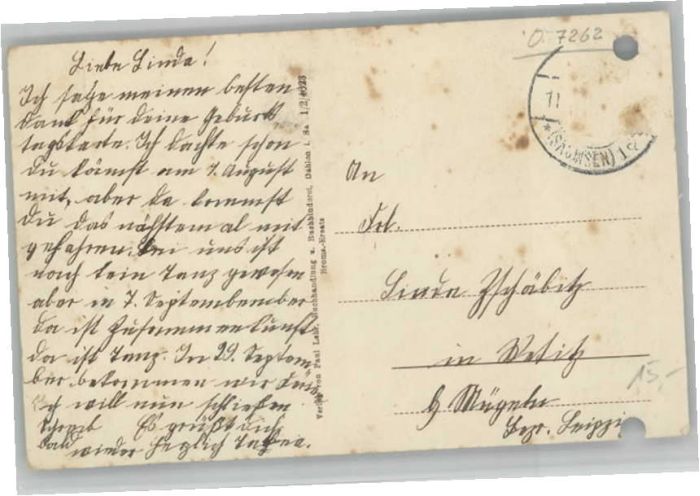 Liebe Linda!
Ich sage meinen besten
Dank für deine Geburts
tagskarte. Ich dachte schon
du kämst am 7. August
mit, aber da kommst
du das nächstemal mit
gefahren. Bei uns ist
noch kein Tanz gewesen
aber in 7. Septembember
da ist Zusammenkunft
da ist Tanz. In 29. Septem
ber bekommen wir
Ich will nun schließen
Es grüßt dich
bald wieder herzlich
Verlag von Paul Buchhandlung u. Buchbinderei, Dahlen i. Sa 1/2
Broms.-Ersatz
O 7262
11
(SACHSEN)
An
Frl.
Linda Zschäbitz
in Wetitz
b Mügeln
Bez. Leipzig
15,-